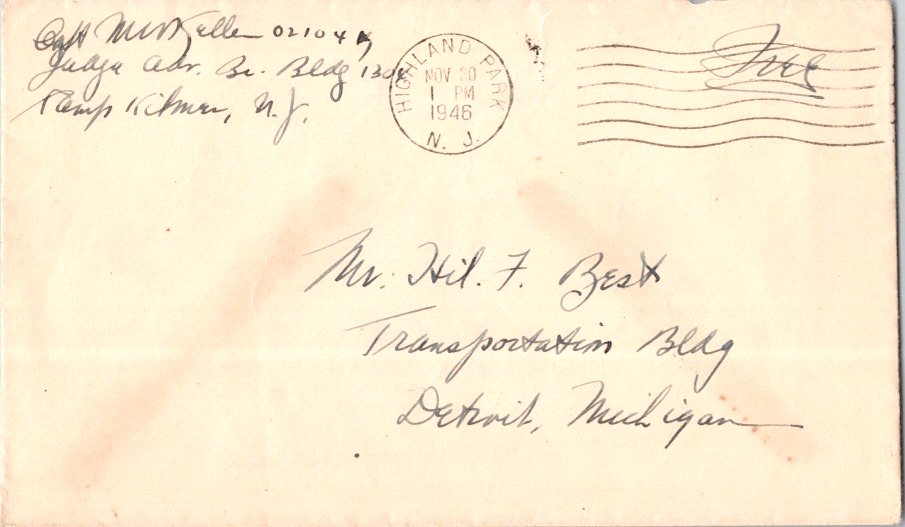 Capt
Judge Adv. Br. Bldg
Camp Kilmer, N. J.
HIGHLAND PARK
NOV 30
1 PM
1946
N. J.
Free
Mr. Hil. F. Best
Transportation Bldg
Detroit, Michigan